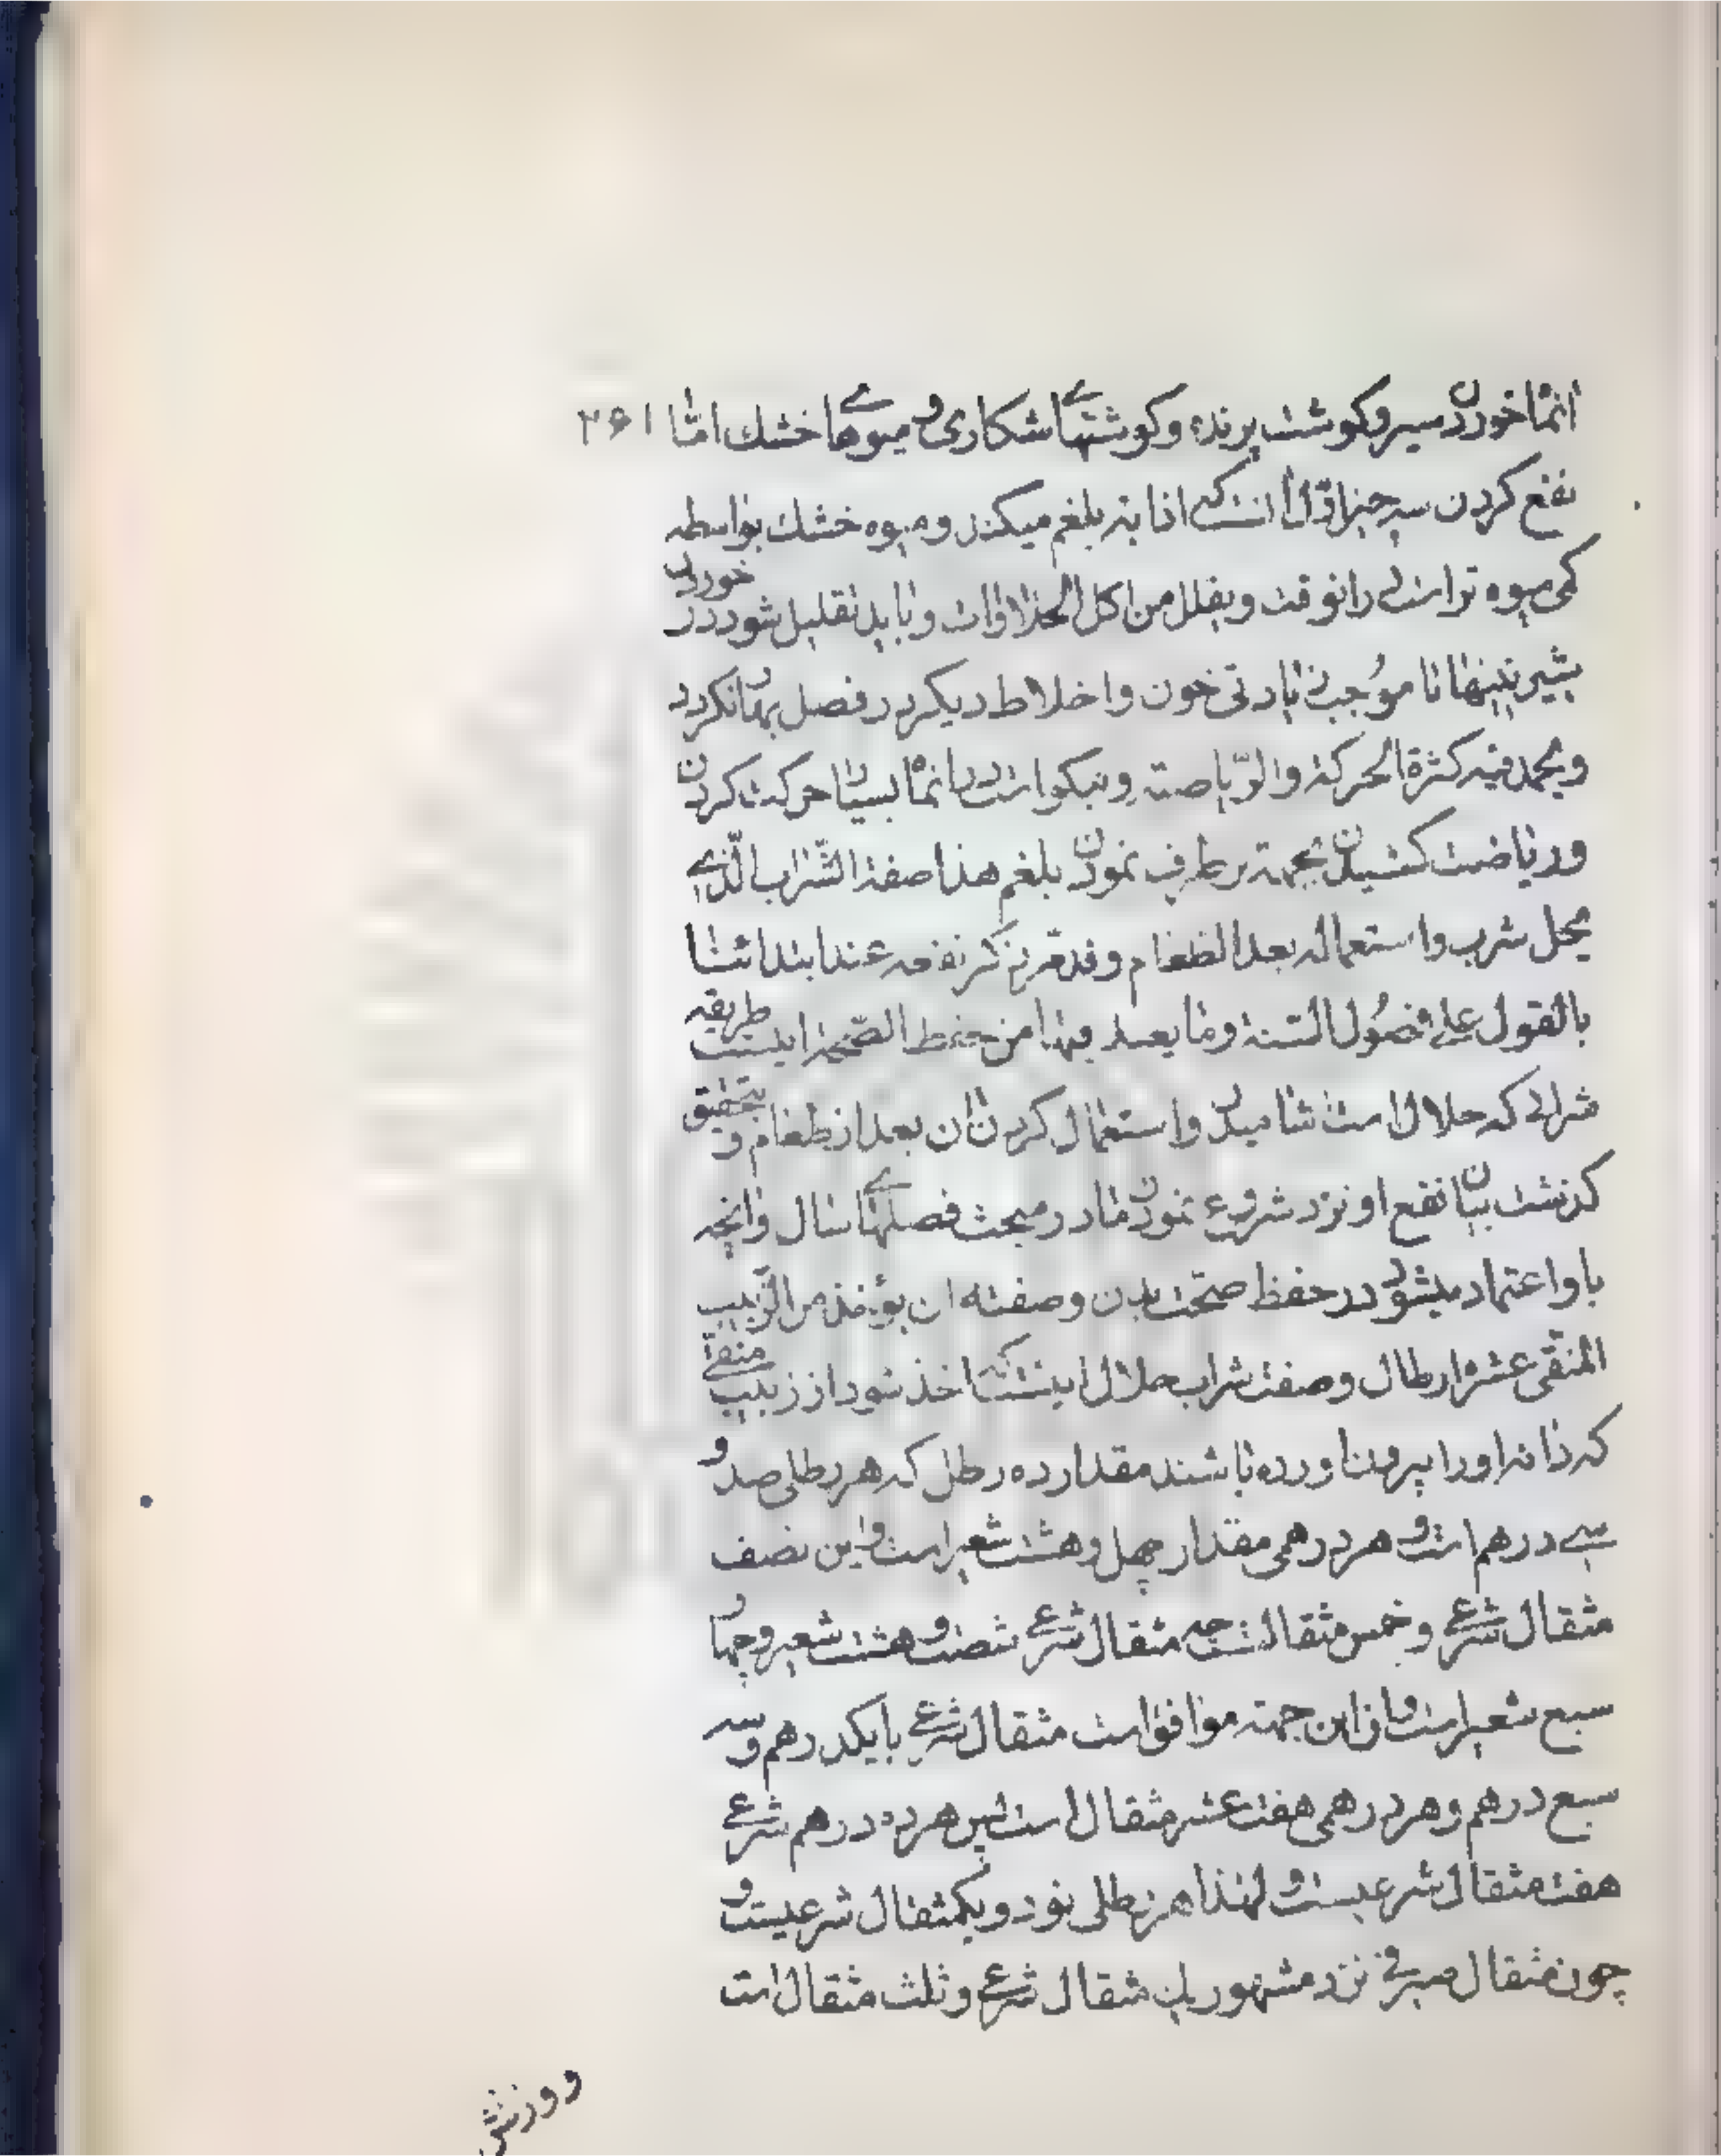 انماه خوردن سیر و کوشت پرنده و کوشتهای شکاری و میوهای خشك امّا ۲۶۱
نفع کردن سیر جز اوّل انست که اذابه بلغم میکند و میوه خشك بواسطه
کمی میوه تر است در انوقت ویقلل من اکل الحلاوات و باید تقلیل شود در خوردن
شیرینیها تا موجب زیادتی خون و اخلاط دیکر در فصل بهار نکردد
ویحمد فیه کثرة الحرکة والرّیاضة و نیکو است در انماه بسیار حرکت کردن
و ریاضت کشیدن بجهة برطرف نمودن بلغم هذا صفة الشّراب الّذی
یحل شربه واستعماله بعد الطعام وقد تقدّم ذکر نفعه عند ابتدائنا
بالقول علی فصُول السّنة وما یعتمد فیها من حفظ الصّحة اینست طریقه
شرابی که حلال است اشامیدن و استعمال کردن ان بعد از طعام و بتحقیق
کذشت بیان نفع او نزد شروع نمودن ما در مبحث فصلهای سال و انچه
باو اعتماد میشود در حفظ صحّت بدن وصفته ان یؤخذ من الزّبیب
المنقّی عشرة ارطال و صفت شراب حلال اینست که اخذ شود از زبیب منقّی
که دانه او را بیرون اورده باشند مقدار ده رطل که هر رطلی صد و
سی درهم است و هر درهمی مقدار چهل و هشت شعیر است و این نصف
مثقال شرعی و خمس مثقالست چه مثقال شرعی شصت و هشت شعیر و چهار
سبع شعیر است و از این جهة موافق است مثقال شرعی با یکدرهم و سه
سبع درهم و هر درهمی هفت عشر مثقال است پس هر ده درهم شرعی
هفت مثقال شرعیست و لهذا هر رطلی نود و یکمثقال شرعیست و
چون مثقال صیرفی نزد مشهور یك مثقال شرعی و ثلث مثقال است
و وزنش